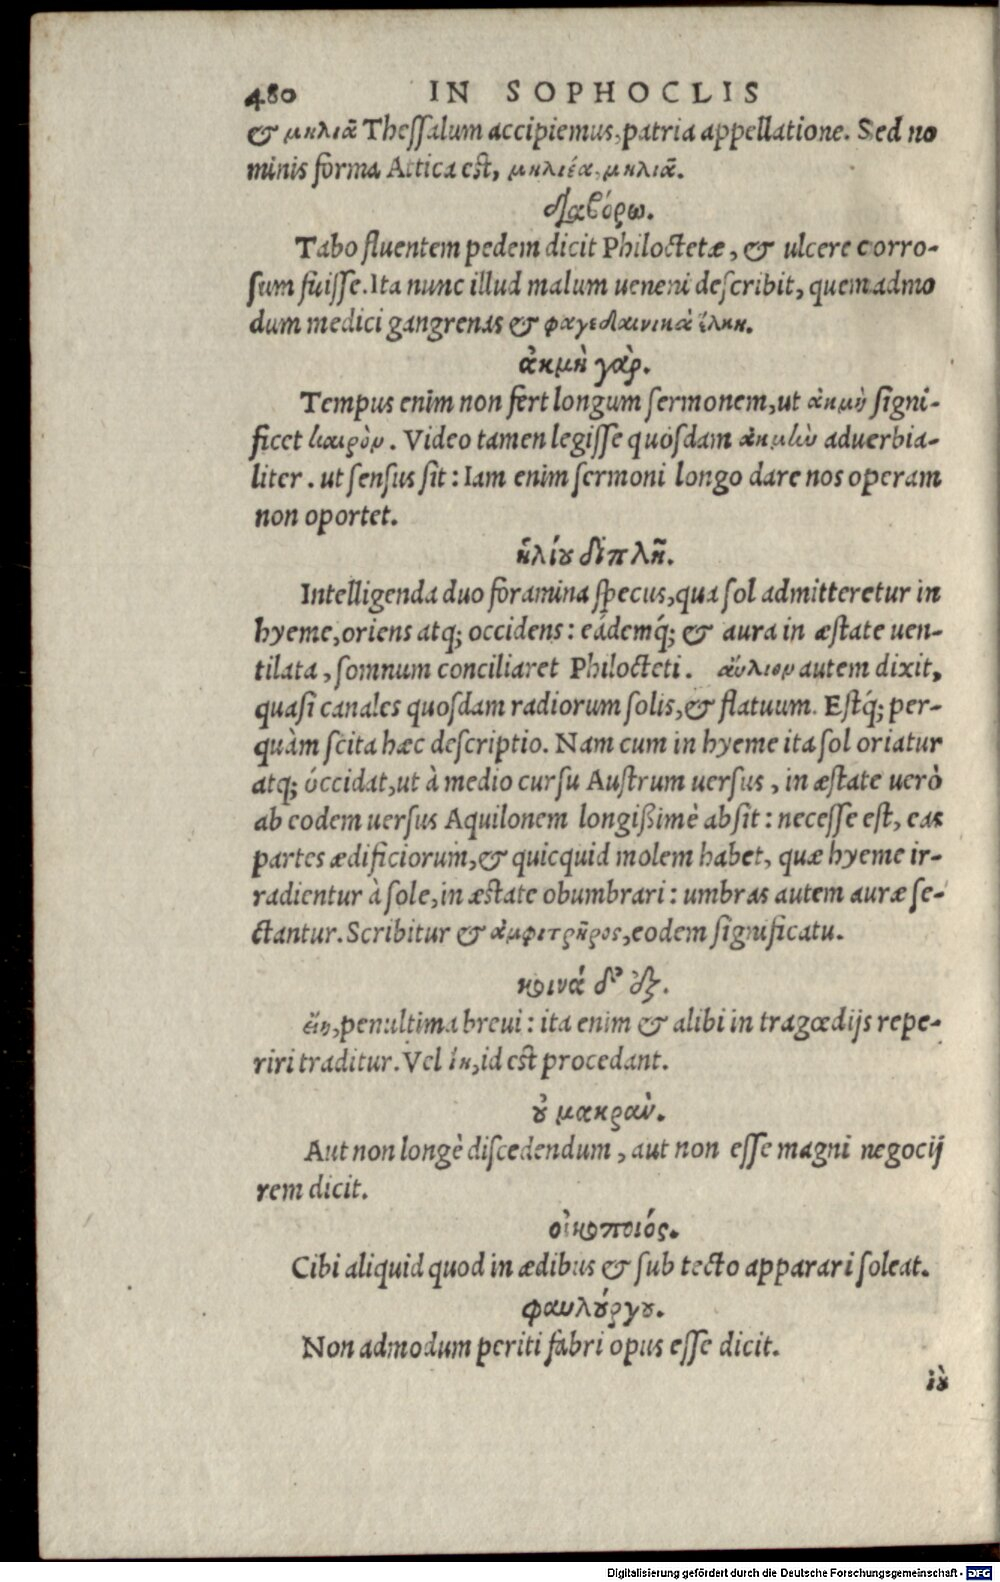 480 IN SOPHOCLIS
& μηλιᾶ Thessalum accipiemus, patria appellatione. Sed no
minis forma Attica est, μηλιέα, μηλιᾶ.
διαβόρῳ.
Tabo fluentem pedem dicit Philoctetæ, & ulcere corro-
sum fuisse. Ita nunc illud malum ueneni describit, quemadmo
dum medici gangrenas & φαγεδαινικὰ ἕλκη.
ἀκμὴ γὰρ.
Tempus enim non fert longum sermonem, ut ἀκμὴ signi-
ficet καιρὸν. Video tamen legisse quosdam ἀκμὴν aduerbia-
liter. ut sensus sit: Iam enim sermoni longo dare nos operam
non oportet.
ἡλίου διπλῆ.
Intelligenda duo foramina specus, qua sol admitteretur in
hyeme, oriens atq; occidens: eádemq́; & aura in æstate uen-
tilata, somnum conciliaret Philocteti. αὔλιον autem dixit,
quasi canales quosdam radiorum solis, & flatuum. Estq́; per-
quàm scita hæc descriptio. Nam cum in hyeme ita sol oriatur
atq; óccidat, ut à medio cursu Austrum uersus, in æstate uerò
ab eodem uersus Aquilonem longißimè absit: necesse est, eas
partes ædificiorum, & quicquid molem habet, quæ hyeme ir-
radientur à sole, in æstate obumbrari: umbras autem auræ se-
ctantur. Scribitur & ἀμφιτρῆρος, eodem significatu.
κοινὰ δ' ἐξ.
penultima breui: ita enim & alibi in tragœdijs repe-
riri traditur. Vel ἵη, id est procedant.
οὐ μακρὰν.
Aut non longè discedendum, aut non esse magni negocij
rem dicit.
οἰκοποιός.
Cibi aliquid quod in ædibus & sub tecto apparari soleat.
φαυλούργου.
Non admodum periti fabri opus esse dicit.
ἰοὺ
Digitalisierung gefördert durch die Deutsche Forschungsgemeinschaft - DFG